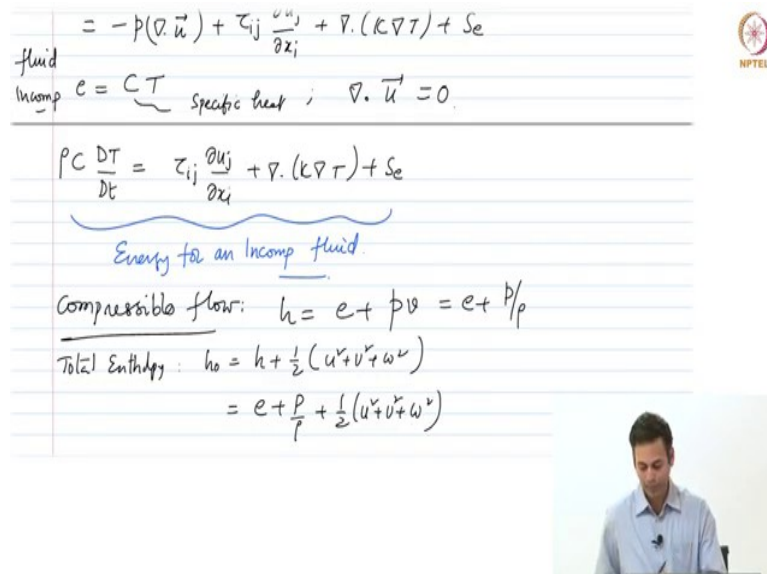 = -p(∇.u⃗) + τij ∂uj/∂xi + ∇.(K∇T) + Se
NPTEL
fluid
Incomp e = CT Specific heat ; ∇.u⃗ = 0.
ρC DT/Dt = τij ∂uj/∂xi + ∇.(K∇T) + Se
Energy for an Incomp fluid.
Compressible flow: h = e + pv = e + p/ρ
Total Enthalpy : h₀ = h + 1/2 (u²+v²+w²)
= e + p/ρ + 1/2 (u²+v²+w²)